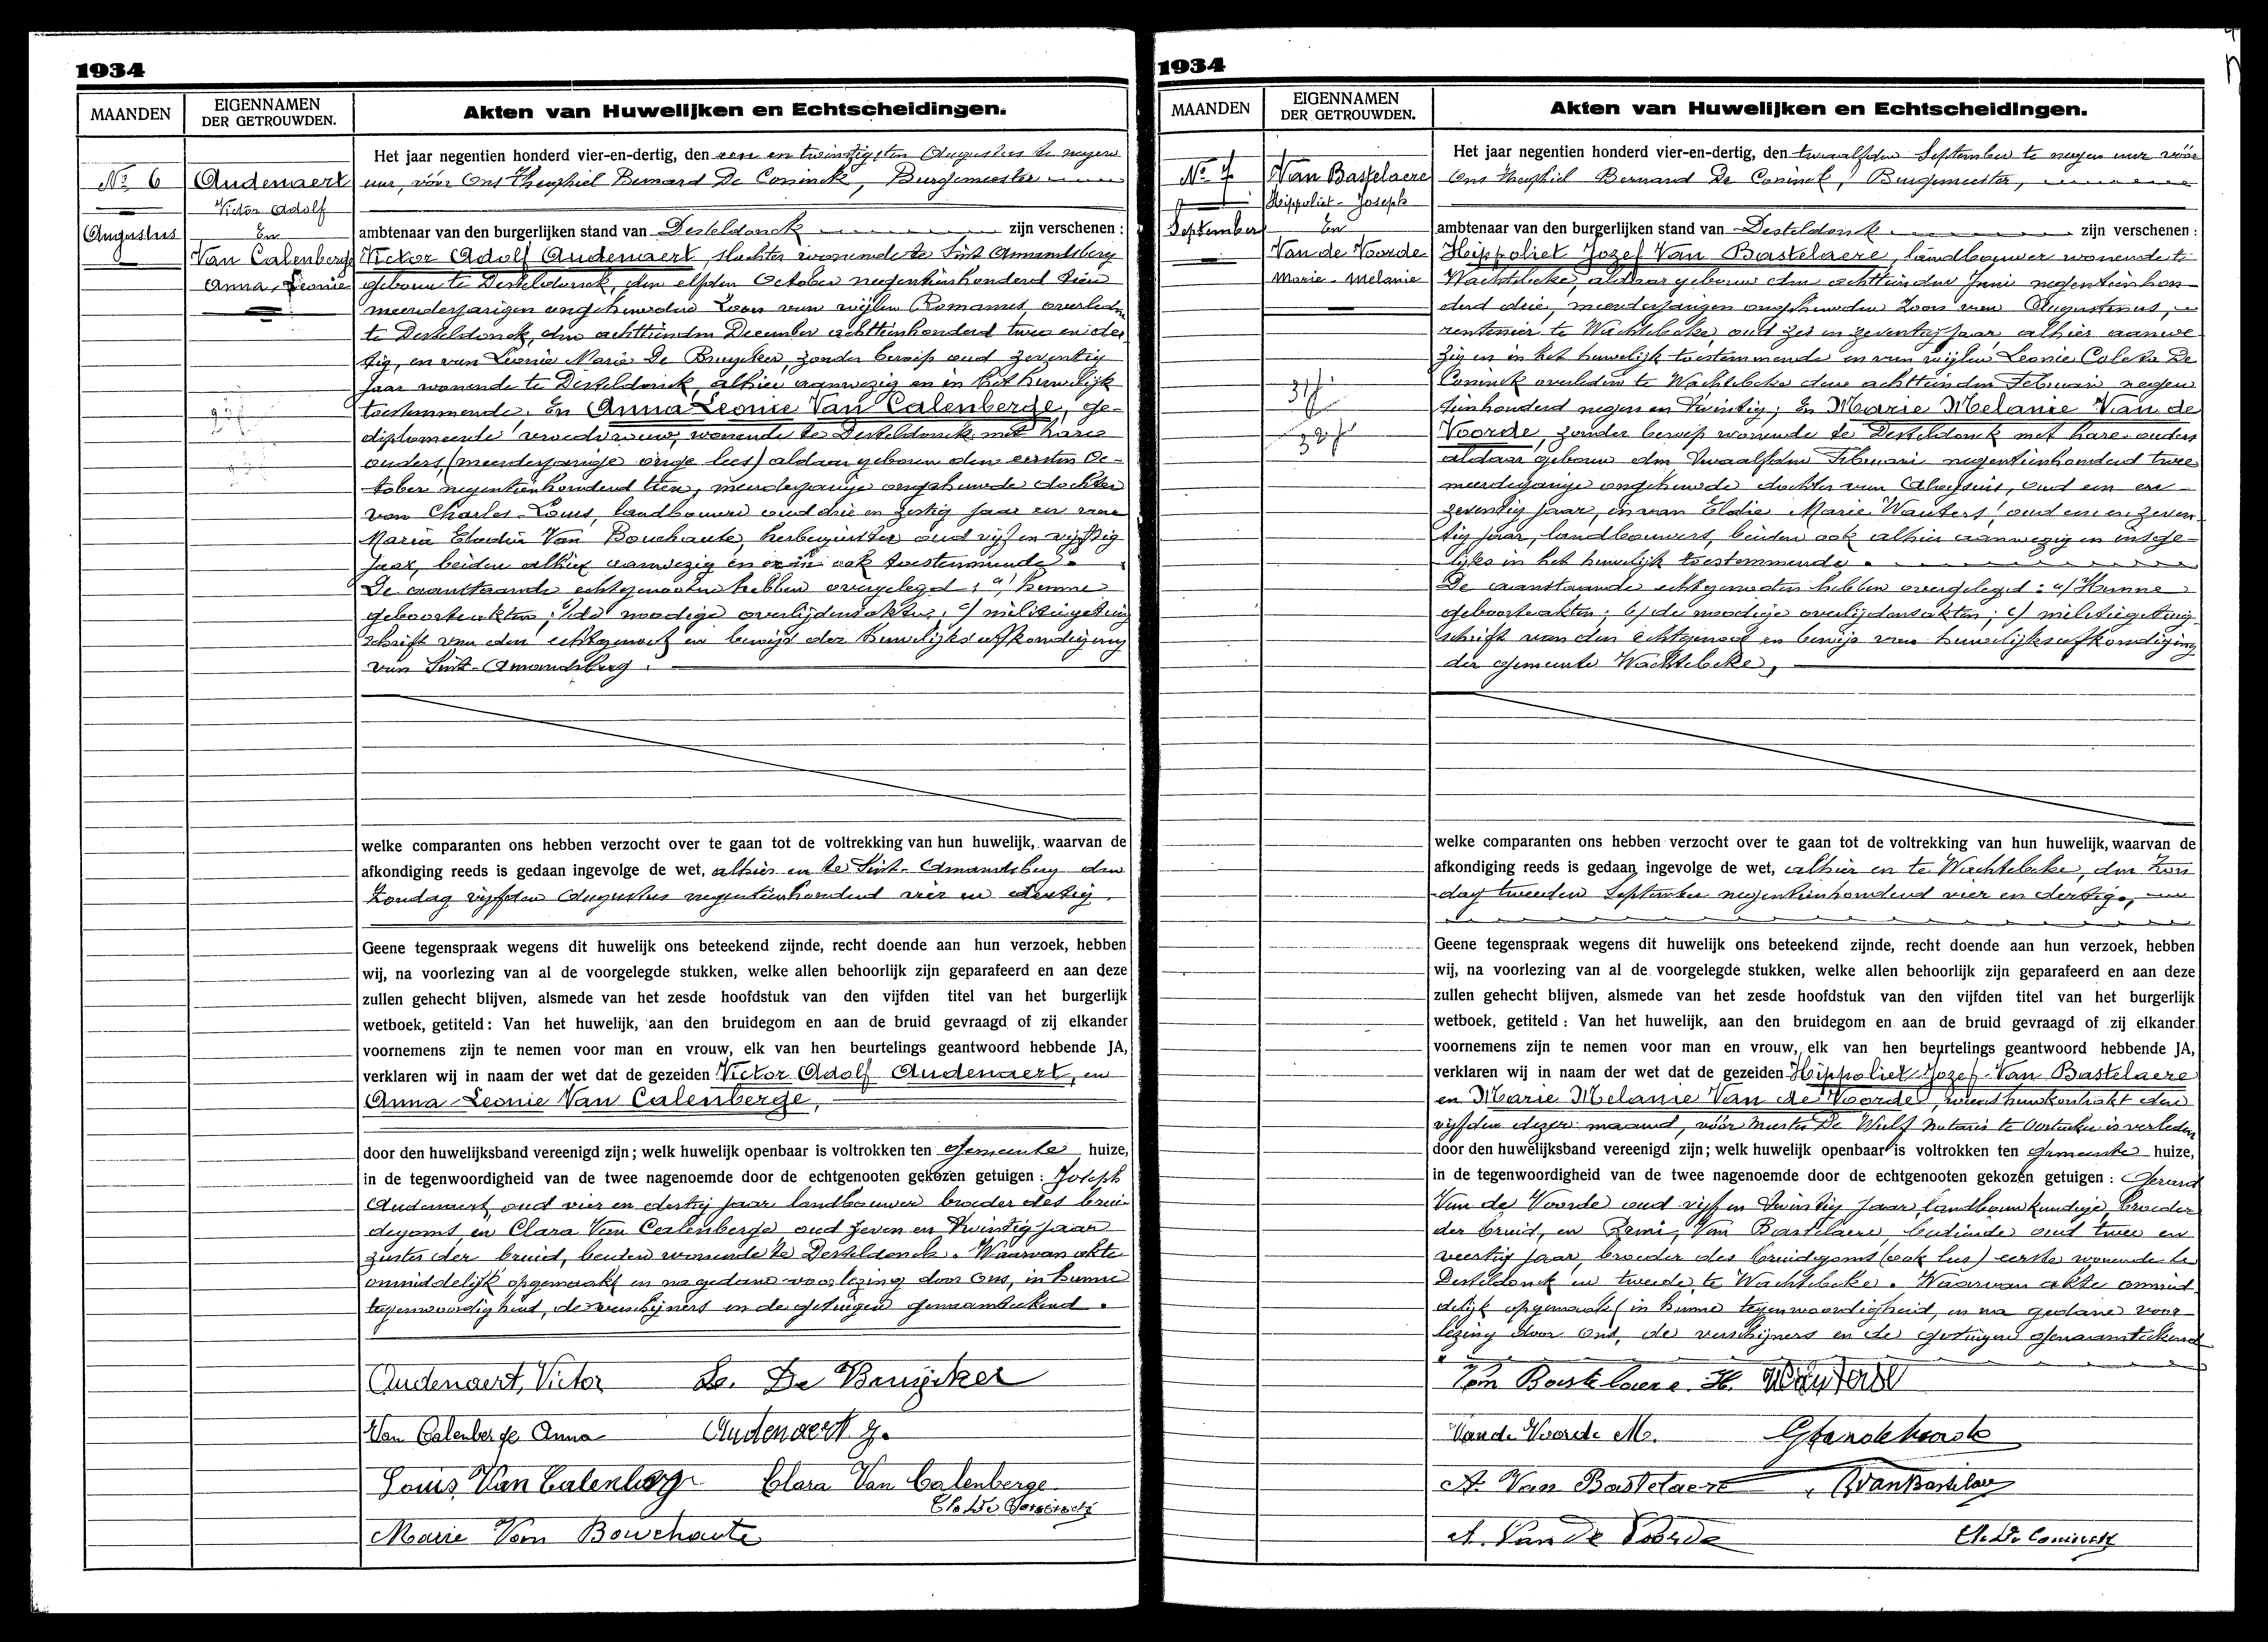 1934
MAANDEN
EIGENNAMEN
DER GETROUWDEN.
Akten van Huwelijken en Echtscheidingen.
No 6
Augustus
Audenaert
Victor Adolf
En
Van Calenberge
Anna, Leonie
Het jaar negentien honderd vier-en-dertig, den een en twintigsten Augustus te negen
uur, vóór Ons Theophiel Bernard De Coninck, Burgemeester
ambtenaar van den burgerlijken stand van Desteldonck zijn verschenen :
Victor Adolf Audenaert slachter wonende te Sint Amandsberg
geboren te Desteldonck, den elfden October negentienhonderd tien
meerderjarigen ongehuwden Zoon van wijlen Romanus, overleden
te Desteldonck, den achttienden December achttienhonderd twee en der
tig, en van Leonie Marie De Bruycker, zonder beroep oud zeventig
jaar wonende te Desteldonck, alhier aanwezig en in het huwelijk
toestemmende. En Anna Leonie Van Calenberge, ge-
diplomeerde vroedvrouw, wonende te Desteldonck met hare
ouders, (meerderjarige enige lees) aldaar geboren den eersten Oc-
tober negentienhonderd tien, meerderjarige ongehuwde dochter
van Charles-Louis, landbouwer oud drie en zestig jaar en van
Maria Elodia Van Bouchaute, herbergierster oud vijf en vijftig
jaar, beiden alhier aanwezig en er in ook toestemmende.
De aanstaande echtgenooten hebben overgelegd : a) hunne
geboorteakten; b) de noodige overlijdensakten; c) militiegetuig
schrift van den echtgenoot en bewijs der huwelijksafkondiging
van Sint-Amandsberg.
welke comparanten ons hebben verzocht over te gaan tot de voltrekking van hun huwelijk, waarvan de
afkondiging reeds is gedaan ingevolge de wet, alhier en te Sint-Amandsberg den
Zondag vijfden Augustus negentienhonderd vier en dertig.
Geene tegenspraak wegens dit huwelijk ons beteekend zijnde, recht doende aan hun verzoek, hebben
wij, na voorlezing van al de voorgelegde stukken, welke allen behoorlijk zijn geparafeerd en aan deze
zullen gehecht blijven, alsmede van het zesde hoofdstuk van den vijfden titel van het burgerlijk
wetboek, getiteld : Van het huwelijk, aan den bruidegom en aan de bruid gevraagd of zij elkander
voornemens zijn te nemen voor man en vrouw, elk van hen beurtelings geantwoord hebbende JA,
verklaren wij in naam der wet dat de gezeiden Victor Adolf Audenaert, en
Anna Leonie Van Calenberge,
door den huwelijksband vereenigd zijn; welk huwelijk openbaar is voltrokken ten Gemeente huize,
in de tegenwoordigheid van de twee nagenoemde door de echtgenooten gekozen getuigen : Joseph
Audenaert, oud vier en dertig jaar landbouwer broeder des brui-
degoms, en Clara Van Calenberge oud zeven en twintig jaar
zuster der bruid, beiden wonende te Desteldonck. Waarvan akte
onmiddelijk opgemaakt en na gedane voorlezing door ons, in hunne
tegenwoordigheid, de verschijners en de getuigen genaamteekend.
Audenaert, Victor L. De Bruijcker
Van Calenberge Anna Audenaert J.
Louis Van Calenberge Clara Van Calenberge
Th. De Coninck
Marie Van Bouchaute
1934
MAANDEN
EIGENNAMEN
DER GETROUWDEN.
Akten van Huwelijken en Echtscheidingen.
No 7
September
Van Bastelaere
Hippoliet-Joseph
En
Van de Voorde
Marie-Melanie
Het jaar negentien honderd vier-en-dertig, den twaalfden September te negen uur vóór
Ons Theophiel Bernard De Coninck, Burgemeester,
ambtenaar van den burgerlijken stand van Desteldonck zijn verschenen :
Hippoliet Jozef Van Bastelaere, landbouwer wonende te
Wachtebeke, aldaar geboren den achttienden Juni negentienhon-
derd drie, meerderjarigen ongehuwden Zoon van Augustinus,
rentenier te Wachtebeke, oud zes en zeventig jaar, alhier aanwe
zig en in het huwelijk toestemmende en van wijlen Leonie Coleta De
Coninck overleden te Wachtebeke den achttienden Februari negen
tienhonderd negen en twintig; En Marie Melanie Van de
Voorde, zonder beroep wonende te Desteldonck met hare ouders
aldaar geboren den twaalfden Februari negentienhonderd twee
meerderjarige ongehuwde dochter van Aloysius, oud een en
zeventig jaar, en van Elodie Marie Wauters, oud een en zeven
tig jaar, landbouwers, beiden ook alhier aanwezig en insge-
lijks in het huwelijk toestemmende.
De aanstaande echtgenooten hebben overgelegd : a) Hunne
geboorteakten; b) de noodige overlijdensakten; c) militiegetuig
schrift van den echtgenoot en bewijs van huwelijksafkondiging
der gemeente Wachtebeke,
welke comparanten ons hebben verzocht over te gaan tot de voltrekking van hun huwelijk, waarvan de
afkondiging reeds is gedaan ingevolge de wet, alhier en te Wachtebeke, den Zon
dag tweeden September negentienhonderd vier en dertig.
Geene tegenspraak wegens dit huwelijk ons beteekend zijnde, recht doende aan hun verzoek, hebben
wij, na voorlezing van al de voorgelegde stukken, welke allen behoorlijk zijn geparafeerd en aan deze
zullen gehecht blijven, alsmede van het zesde hoofdstuk van den vijfden titel van het burgerlijk
wetboek, getiteld : Van het huwelijk, aan den bruidegom en aan de bruid gevraagd of zij elkander
voornemens zijn te nemen voor man en vrouw, elk van hen beurtelings geantwoord hebbende JA,
verklaren wij in naam der wet dat de gezeiden Hippoliet Jozef Van Bastelaere
en Marie Melanie Van de Voorde, wiens huwkontrakt den
vijfden dezer maand, vóór Meester De Wulf Notaris te Oostacker is verleden
door den huwelijksband vereenigd zijn; welk huwelijk openbaar is voltrokken ten Gemeente huize,
in de tegenwoordigheid van de twee nagenoemde door de echtgenooten gekozen getuigen : Gerard
Van de Voorde oud vijf en twintig jaar, landbouwkundige, broeder
der bruid, en Remi, Van Bastelaere, bediende oud twee en
veertig jaar, broeder des bruidegoms (ook lees) eerste wonende te
Desteldonck en tweede te Wachtebeke. Waarvan akte onmid
delijk opgemaakt in hunne tegenwoordigheid, en na gedane voor
lezing door ons, de verschijners en de getuigen genaamteekend
Van Bastelaere. H. Wauters
Van de Voorde M. G Vandevoorde
A. Van Bastelaere R Van Bastelaere
A. Van De Voorde Th. De Coninck